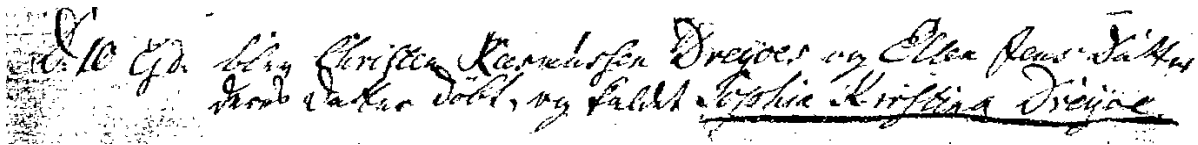 d: 10 Ejd. blev Christen Rasmussen Dreyers og Ellen Jens Datter
deres Datter Döbt, og kaldet Sophie Kirstina Dreyer